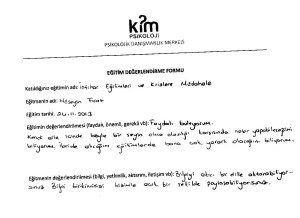 kim
PSİKOLOJİ
PSİKOLOJİK DANIŞMANLIK MERKEZİ
EĞİTİM DEĞERLENDİRME FORMU
Katıldığınız eğitimin adı: İntihar Eğilimleri ve Krizlere Müdahale
Eğitmenin adı: Hüseyin
Eğitim tarihi: 24.11.2013
Eğitimin değerlendirilmesi (faydalı, önemli, gerekli vb): Faydalı buluyorum.
içinde böyle bir şeyin olma olasılığı karşısında neler yapabileceğimi
biliyorum. İleride alacağım eğitimlerde bana çok yararlı olacağını biliyorum.
Eğitmenin değerlendirilmesi (bilgi, yeterlilik, aktarım, iletişim vb): Bilgiyi bir dille aktarabiliyor-
sunuz. Bilgi birikiminizi bizimle açık bir şekilde paylaşabiliyorsunuz.